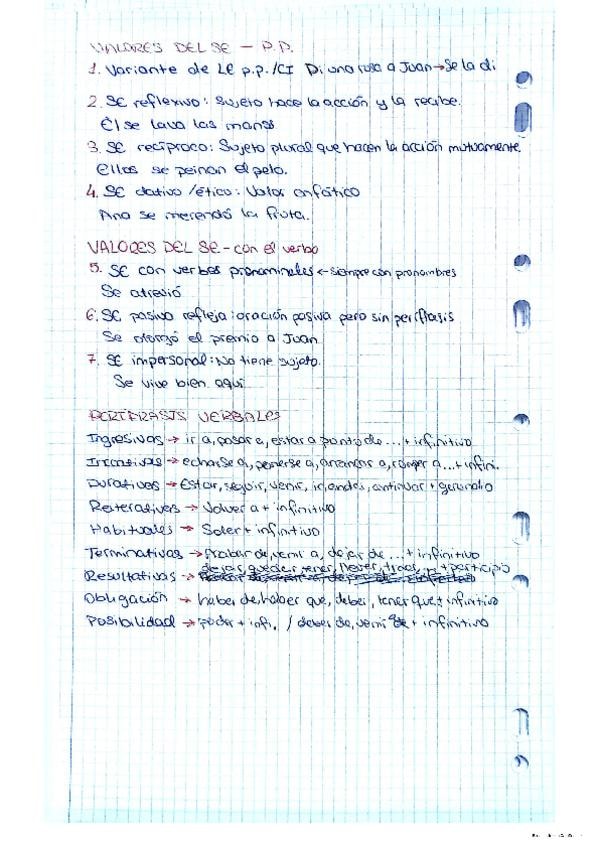 VALORES DEL SE - P.P.
1. Variante de LE p.p./CI Di una rosa a Juan→Se la di
2. SE reflexivo: Sujeto hace la acción y la recibe.
Él se lava las manos.
3. SE recíproco: Sujeto plural que hacen la acción mutuamente
Ellos se peinan el pelo.
4. SE dativo/ético: Valor enfático
Ana se merendó la fruta.
VALORES DEL SE - con el verbo
5. SE con verbos pronominales ← siempre con pronombres
Se atrevió
6. SE pasivo refleja: oración pasiva pero sin perífrasis
Se otorgó el premio a Juan
7. SE impersonal: No tiene sujeto.
Se vive bien aquí
PERÍFRASIS VERBALES
Ingresivas → ir a, pasar a, estar a punto de ... + infinitivo
Incoativas → echarse a, ponerse a, arrancar a, romper a ... + infini.
Durativas → Estar, seguir, venir, ir, andar, continuar + gerundio
Reiterativas → Volver a + infinitivo
Habituales → Soler + infinitivo
Terminativas → Acabar de, venir a, dejar de ... + infinitivo
Resultativas → dejar, quedar, tener, llevar, traer, + participio
Obligación → haber de, haber que, deber, tener que + infinitivo
Posibilidad → poder + infi. / deber de, venir a + infinitivo